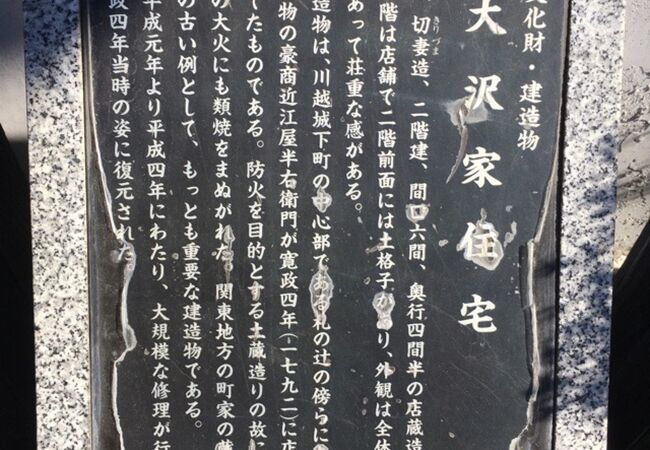 文化財・建造物
大沢家住宅
切妻造、二階建、間口六間、奥行四間半の店蔵造
階は店舗で二階前面には土格子があり、外観は全体
あって荘重な感がある。
造物は、川越城下町の中心部である札の辻の傍らに
物の豪商近江屋半右衛門が寛政四年(一七九二)に店
てたものである。防火を目的とする土蔵造りの故に
の大火にも類焼をまぬがれた。関東地方の町家の蔵
の古い例として、もっとも重要な建造物である。
平成元年より平成四年にわたり、大規模な修理が行
政四年当時の姿に復元された
きりづま